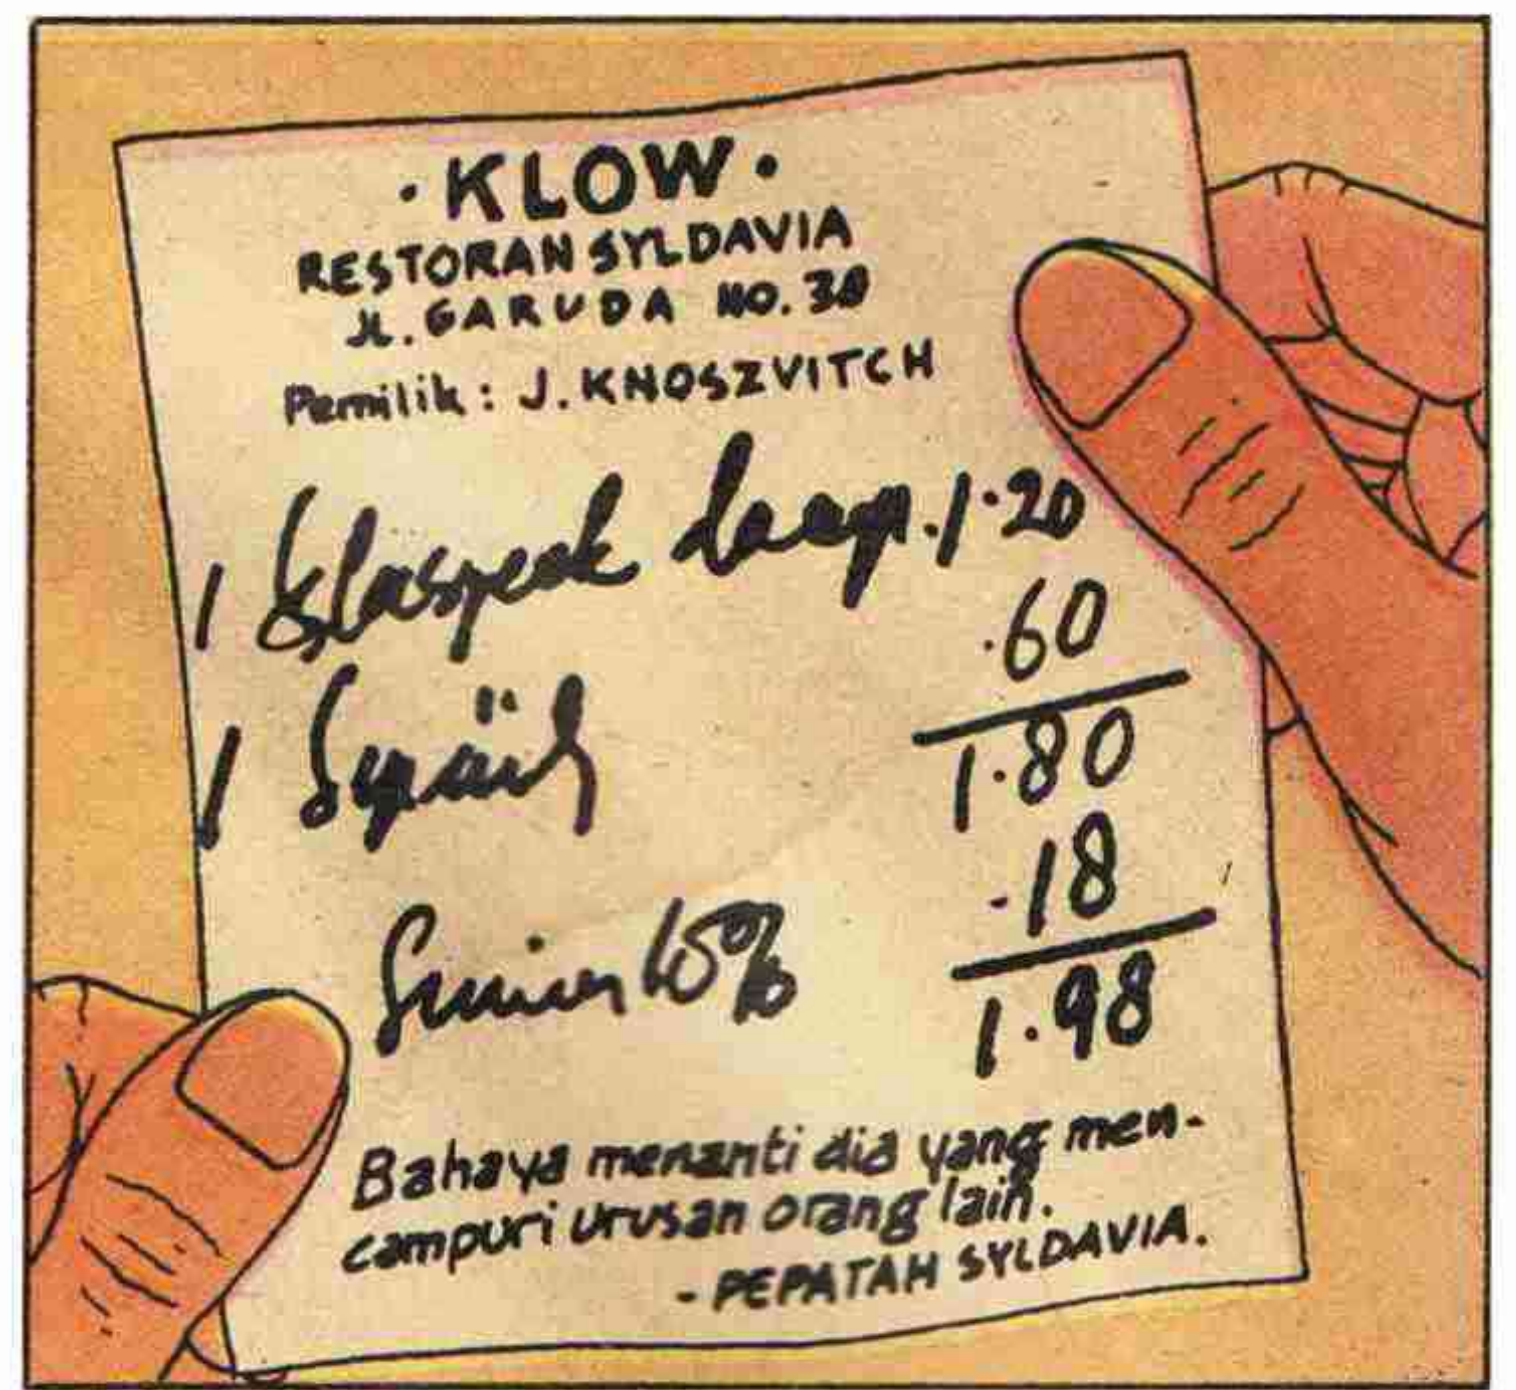 · KLOW ·
RESTORAN SYLDAVIA
JL. GARUDA NO. 38
Pemilik : J. KNOSZVITCH
1 1.20
1 .60
1.80
10% .18
1.98
Bahaya menanti dia yang men-
campuri urusan orang lain.
- PEPATAH SYLDAVIA.